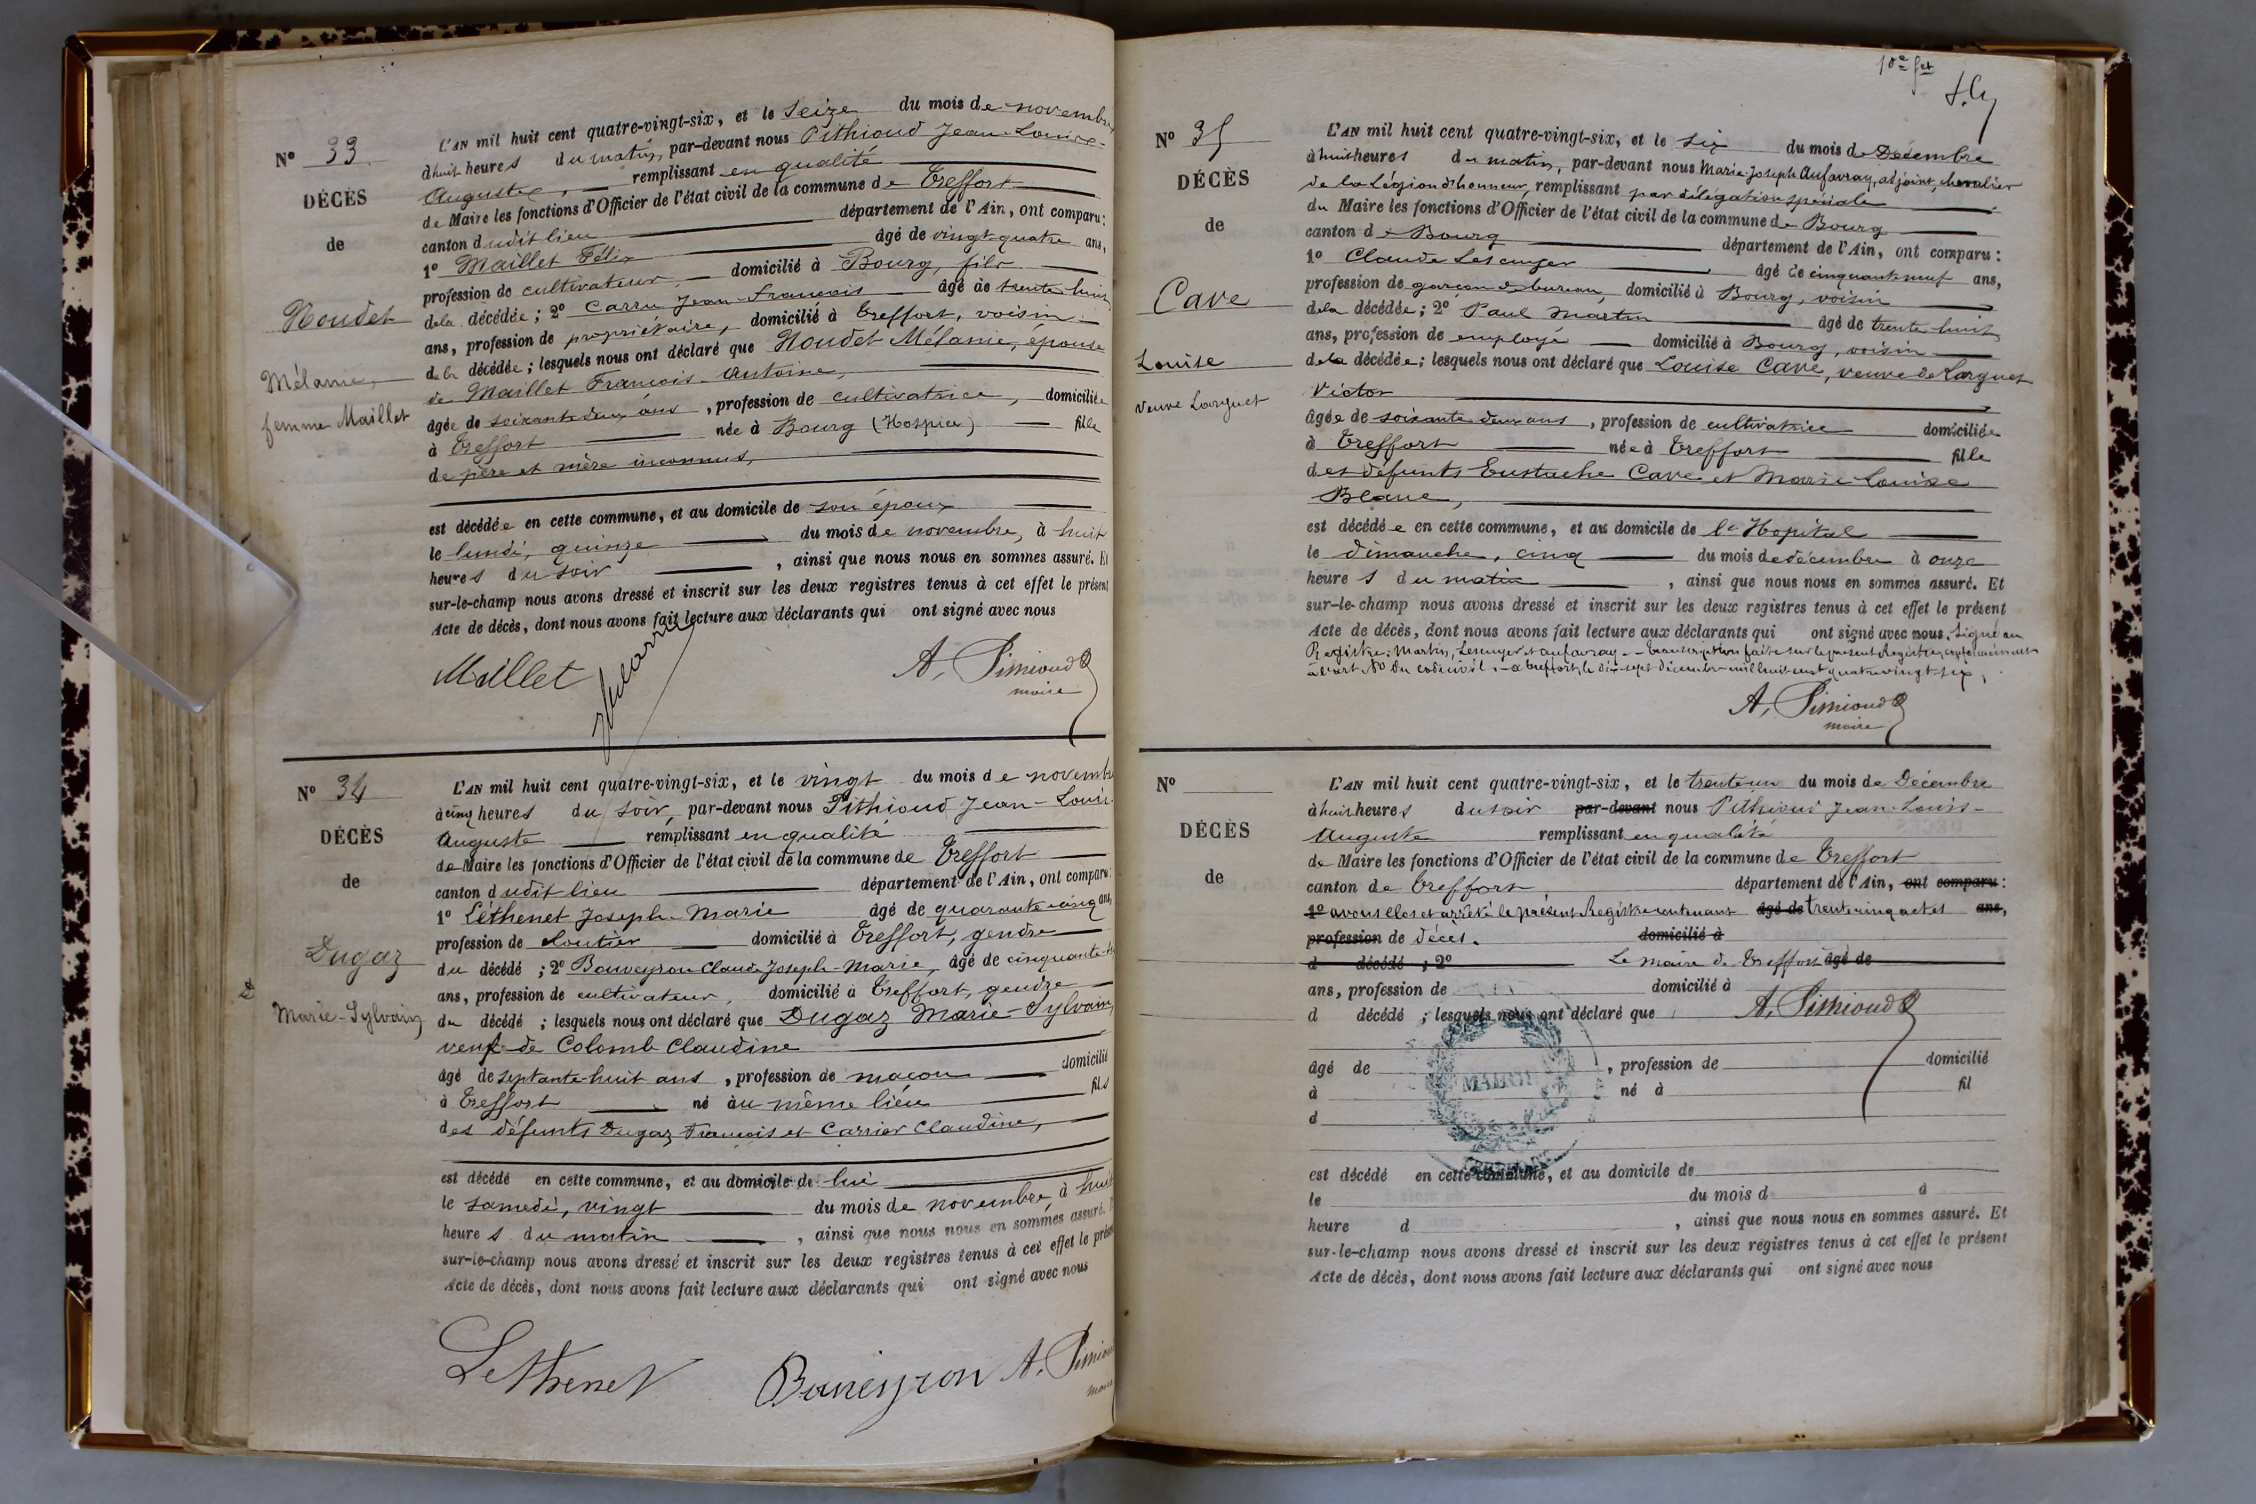 N° 33
DÉCÈS
de
Noudet
Mélanie,
femme Maillet
L'AN mil huit cent quatre-vingt-six, et le seize du mois de novembre
à huit heures du matin, par-devant nous Pithioud Jean-Louis-
Auguste, remplissant en qualité
de Maire les fonctions d'Officier de l'état civil de la commune de Treffort
canton dudit lieu département de l'Ain, ont comparu :
1° Maillet Félix âgé de vingt-quatre ans,
profession de cultivateur, domicilié à Bourg, fils
de la décédée ; 2° Carru Jean-François âgé de trente-huit
ans, profession de propriétaire, domicilié à Treffort, voisin
de la décédée ; lesquels nous ont déclaré que Noudet Mélanie, épouse
de Maillet François-Antoine,
âgée de soixante-deux ans, profession de cultivatrice, domiciliée
à Treffort née à Bourg (Hospice) fille
de père et mère inconnus,
est décédée en cette commune, et au domicile de son époux
le lundi, quinze du mois de novembre, à huit
heures du soir, ainsi que nous nous en sommes assuré. Et
sur-le-champ nous avons dressé et inscrit sur les deux registres tenus à cet effet le présent
Acte de décès, dont nous avons fait lecture aux déclarants qui ont signé avec nous
Maillet A. Pithioud
maire
N° 34
DÉCÈS
de
Dugaz
Marie-Sylvain
L'AN mil huit cent quatre-vingt-six, et le vingt du mois de novembre
à cinq heures du soir, par-devant nous Pithioud Jean-Louis-
Auguste remplissant en qualité
de Maire les fonctions d'Officier de l'état civil de la commune de Treffort
canton dudit lieu département de l'Ain, ont comparu :
1° Léthenet Joseph-Marie âgé de quarante-cinq ans,
profession de cloutier domicilié à Treffort, gendre
du décédé ; 2° Bouveyron Claude Joseph-Marie, âgé de cinquante
ans, profession de cultivateur, domicilié à Treffort, gendre
du décédé ; lesquels nous ont déclaré que Dugaz Marie-Sylvain,
veuf de Colomb Claudine
âgé de septante-huit ans, profession de maçon domicilié
à Treffort né au même lieu fils
des défunts Dugaz François et Carrier Claudine,
est décédé en cette commune, et au domicile de lui
le samedi, vingt du mois de novembre, à huit
heures du matin, ainsi que nous nous en sommes assuré.
sur-le-champ nous avons dressé et inscrit sur les deux registres tenus à cet effet le présent
Acte de décès, dont nous avons fait lecture aux déclarants qui ont signé avec nous
Lethenet Bouveyron A. Pithioud
maire
10e fet
N° 35
DÉCÈS
de
Cave
Louise
Veuve Larguet
L'AN mil huit cent quatre-vingt-six, et le six du mois de Décembre
à huit heures du matin, par-devant nous Marie-Joseph Aufavray, adjoint, chevalier
de la Légion d'honneur, remplissant par délégation spéciale
du Maire les fonctions d'Officier de l'état civil de la commune de Bourg
canton de Bourg département de l'Ain, ont comparu :
1° Claude Lescuyer âgé de cinquante-neuf ans,
profession de garçon de bureau, domicilié à Bourg, voisin
de la décédée ; 2° Paul Martin âgé de trente-huit
ans, profession de employé domicilié à Bourg, voisin
de la décédée ; lesquels nous ont déclaré que Louise Cave, veuve de Larguet
Victor
âgée de soixante-deux ans, profession de cultivatrice domiciliée
à Treffort née à Treffort fille
des défunts Eustache Cave et Marie-Louise
Blanc,
est décédée en cette commune, et au domicile de l'Hopital
le dimanche, cinq du mois de décembre à onze
heures du matin, ainsi que nous nous en sommes assuré. Et
sur-le-champ nous avons dressé et inscrit sur les deux registres tenus à cet effet le présent
Acte de décès, dont nous avons fait lecture aux déclarants qui ont signé avec nous. Signé au
Registre : Martin, Lescuyer et Aufavray. - Transcription faite sur le présent Registre, conformément
à l'art. 80 du code civil. - à Treffort, le dix-sept décembre mil huit cent quatre-vingt-six,
A. Pithioud
maire
N°
DÉCÈS
de
L'AN mil huit cent quatre-vingt-six, et le trente-un du mois de Décembre
à huit heures du soir par-devant nous Pithioud Jean-Louis-
Auguste remplissant en qualité
de Maire les fonctions d'Officier de l'état civil de la commune de Treffort
canton de Treffort département de l'Ain, ont comparu :
1° avons clos et arrêté le présent Registre contenant âgé de trente-cinq actes ans,
profession de décès. domicilié à
d décédé ; 2° Le maire de Treffort âgé de
ans, profession de domicilié à
d décédé ; lesquels nous ont déclaré que A. Pithioud
âgé de , profession de domicilié
à né à fil
d
MAIRIE
est décédé en cette commune, et au domicile de
le du mois d à
heure d , ainsi que nous nous en sommes assuré. Et
sur-le-champ nous avons dressé et inscrit sur les deux registres tenus à cet effet le présent
Acte de décès, dont nous avons fait lecture aux déclarants qui ont signé avec nous